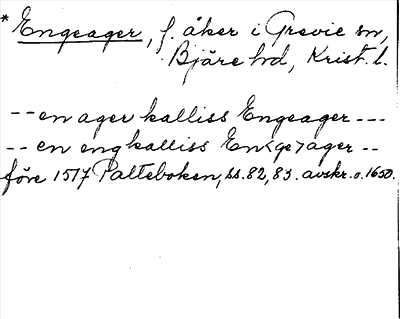 * Engeager, f. åker i Grevie sn,
Bjäre hd, Krist. l.
-- en ager kalliss Engeager ---
-- en eng kalliss En<ge>ager --
före 1517 Palteboken, ss. 82, 83. avskr. o. 1650.